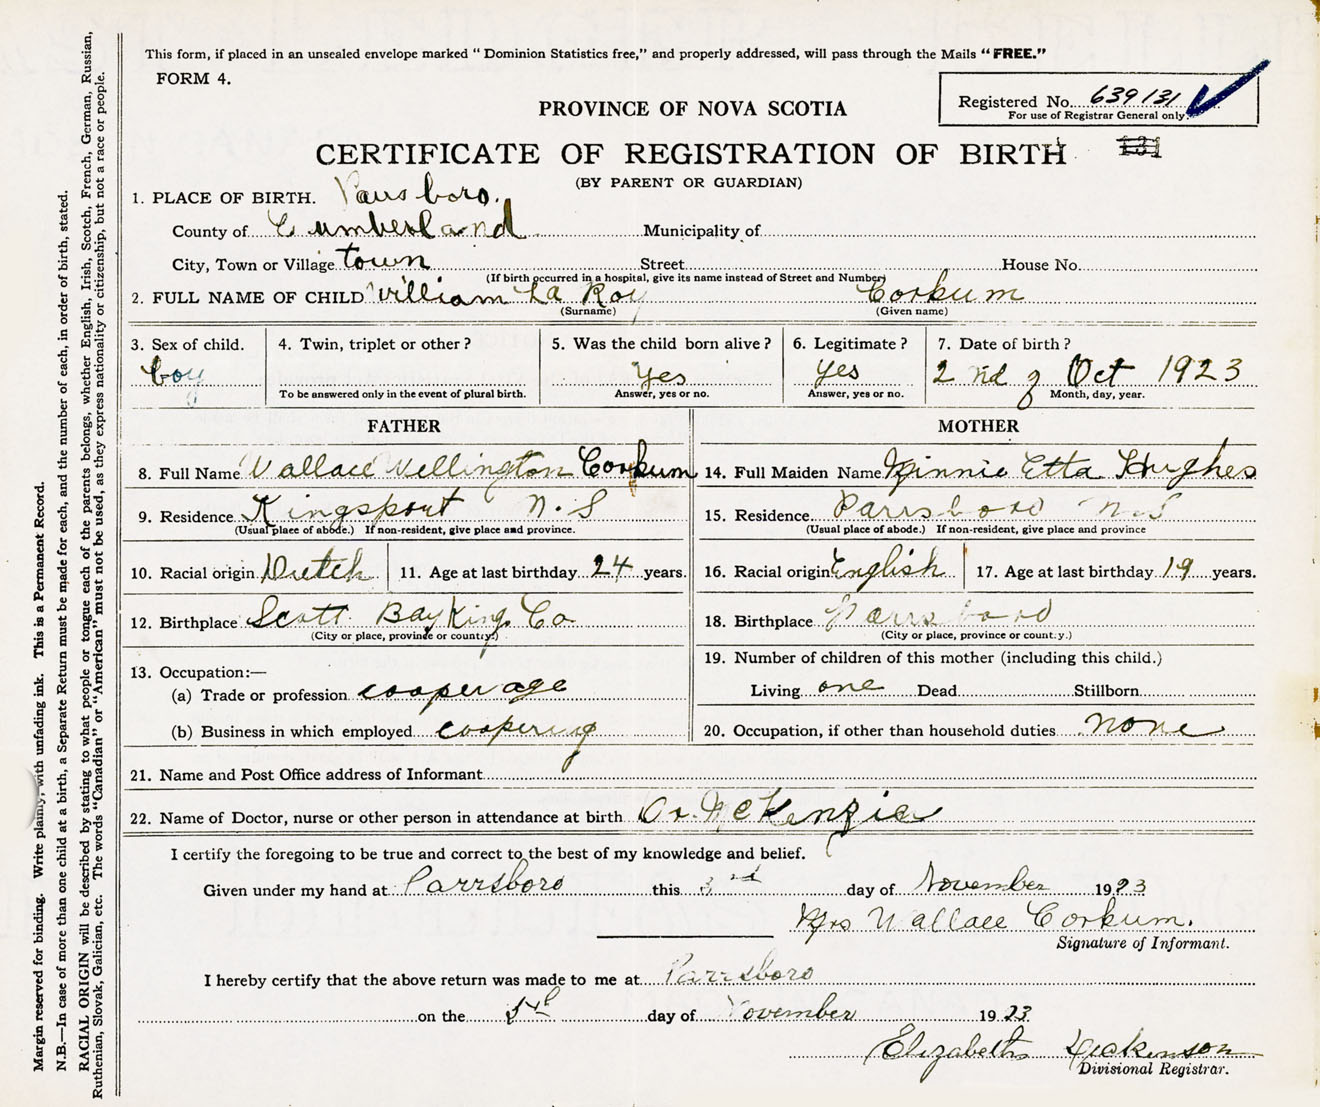 This form, if placed in an unsealed envelope marked "Dominion Statistics free," and properly addressed, will pass through the Mails "FREE."
FORM 4.
Registered No. 639131
For use of Registrar General only.
PROVINCE OF NOVA SCOTIA
CERTIFICATE OF REGISTRATION OF BIRTH 131
(BY PARENT OR GUARDIAN)
1. PLACE OF BIRTH. Parrsboro.
County of Cumberland Municipality of
City, Town or Village town Street House No.
(If birth occurred in a hospital, give its name instead of Street and Number)
2. FULL NAME OF CHILD William La Roy Corkum
(Surname) (Given name)
3. Sex of child. 4. Twin, triplet or other? 5. Was the child born alive? 6. Legitimate? 7. Date of birth?
boy Yes Yes 2 nd of Oct 1923
To be answered only in the event of plural birth. Answer, yes or no. Answer, yes or no. Month, day, year.
FATHER MOTHER
8. Full Name Wallace Wellington Corkum 14. Full Maiden Name Minnie Etta Hughes
9. Residence Kingsport N.S 15. Residence Parrsboro N.S
(Usual place of abode.) If non-resident, give place and province. (Usual place of abode.) If non-resident, give place and province
10. Racial origin Dutch 11. Age at last birthday 24 years. 16. Racial origin English 17. Age at last birthday 19 years.
12. Birthplace Scott Bay King Co 18. Birthplace Parrsboro
(City or place, province or country.) (City or place, province or count.y.)
13. Occupation:—
(a) Trade or profession cooperage
(b) Business in which employed coopering
19. Number of children of this mother (including this child.)
Living one Dead Stillborn
20. Occupation, if other than household duties none
21. Name and Post Office address of Informant
22. Name of Doctor, nurse or other person in attendance at birth Dr. McKenzie
I certify the foregoing to be true and correct to the best of my knowledge and belief.
Given under my hand at Parrsboro this 3rd day of November 1923
Mrs Wallace Corkum.
Signature of Informant.
I hereby certify that the above return was made to me at Parrsboro
on the 3rd day of November 1923
Elizabeth Dickinson
Divisional Registrar.
Margin reserved for binding. Write plainly, with unfading ink. This is a Permanent Record.
N.B.—In case of more than one child at a birth, a Separate Return must be made for each, and the number of each, in order of birth, stated.
RACIAL ORIGIN will be described by stating to what people or tongue each of the parents belongs, whether English, Irish, Scotch, French, German, Russian,
Ruthenian, Slovak, Galician, etc. The words "Canadian" or "American" must not be used, as they express nationality or citizenship, but not a race or people.